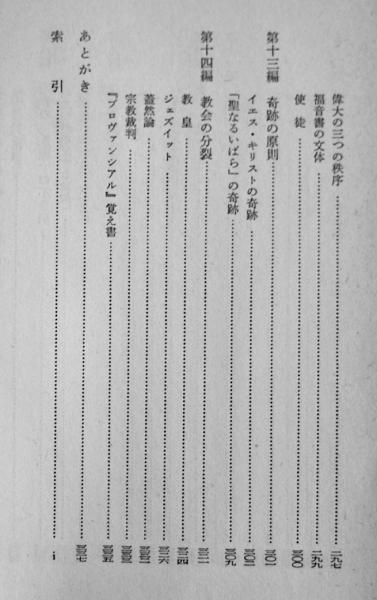 偉大の三つの秩序……二九七
福音書の文体……二九九
使徒……三〇〇
第十三編 奇跡の原則……三〇一
イエス・キリストの奇跡……
「聖なるいばら」の奇跡……三〇九
第十四編 教会の分裂……
教皇……三一四
ジェズイット……三一六
蓋然論……
宗教裁判……
『プロヴァンシアル』覚え書……
あとがき……
索引……i